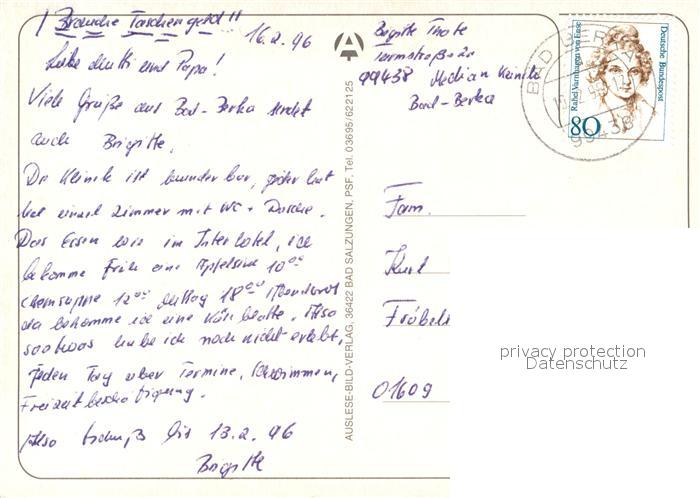 ! Brauche Taschengeld !!
16.2.96
Liebe Mutti und Papa!
Viele Grüße aus Bad-Berka sendet
auch Brigitte.
Die Klinik ist wunderbar, jeder hat
einzel Zimmer mit WC + Dusche.
Das Essen wie im Interhotel, ich
bekomme Früh eine Apfelsine 10 00
12 00 Mittag 18 00 Abendbrot
da bekomme ich eine Käseplatte. Also
sootwas habe ich noch nicht erlebt,
jeden Tag aber Termine, Schwimmen,
Freizeitbeschäftigung.
Also tschüß bis 13.2.96
Brigitte
AUSLESE-BILD-VERLAG, 36422 BAD SALZUNGEN, PSF, Tel. 03695/622125
Brigitte
99438 Median Klinik
Bad-Berka
Deutsche Bundespost
Rahel Varnhagen von Ense
80
BAD BERKA
99438
Fam.
Kurt
Fröbels
01609
privacy protection
Datenschutz